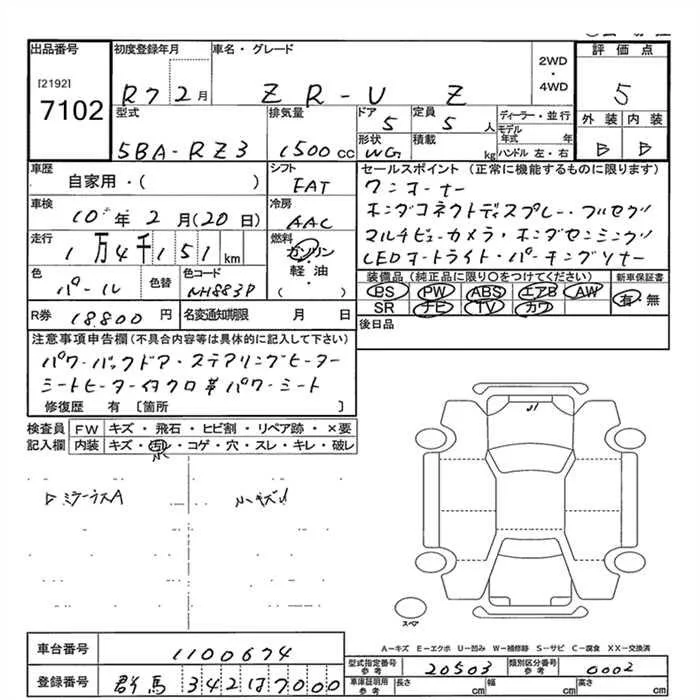 出品番号
[2192]
7102
初度登録年月
R7 2月
車名・グレード
ZR-V Z
2WD
・
4WD
評価点
5
外装 内装
B B
型式
5BA-RZ3
排気量
1500cc
ドア
5
定員
5人
形状
WG
積載
kg
ディーラー・並行
モデル年式 年
ハンドル 左・右
車歴
自家用・( )
シフト
FAT
車検
10年2月(20日)
冷房
AAC
走行
1万4千151km
燃料
ガソリン
・
軽油
( )
色
パール
色替
色コード
NH883P
R券
18,800円
名変通知期限 月 日
セールスポイント (正常に機能するものに限ります)
ワンオーナー
ホンダコネクトディスプレー・フルセグ
マルチビューカメラ・ホンダセンシング
LEDオートライト・パーキングソナー
装備品 (純正品に限り○をつけてください)
BS PW ABS エアB AW
SR ナビ TV カワ
新車保証書
有・無
後日品
注意事項申告欄(不具合内容等は具体的に記入して下さい)
パワーバックドア・ステアリングヒーター
シートヒーター付クロ革パワーシート
修復歴 有 [箇所 ]
検査員
記入欄
FW キズ・飛石・ヒビ割・リペア跡・×要
内装 キズ・汚レ・コゲ・穴・スレ・キレ・破レ
小
小キズU
スペア
A-キズ E-エクボ U-凹み W-補修跡 S-サビ C-腐食 XX-交換済
車台番号
1100674
登録番号
群馬 342 は 7000
型式指定番号
参考
20503
類別区分番号
参考
0002
車体証明用
参考
長さ cm 幅 cm 高さ cm